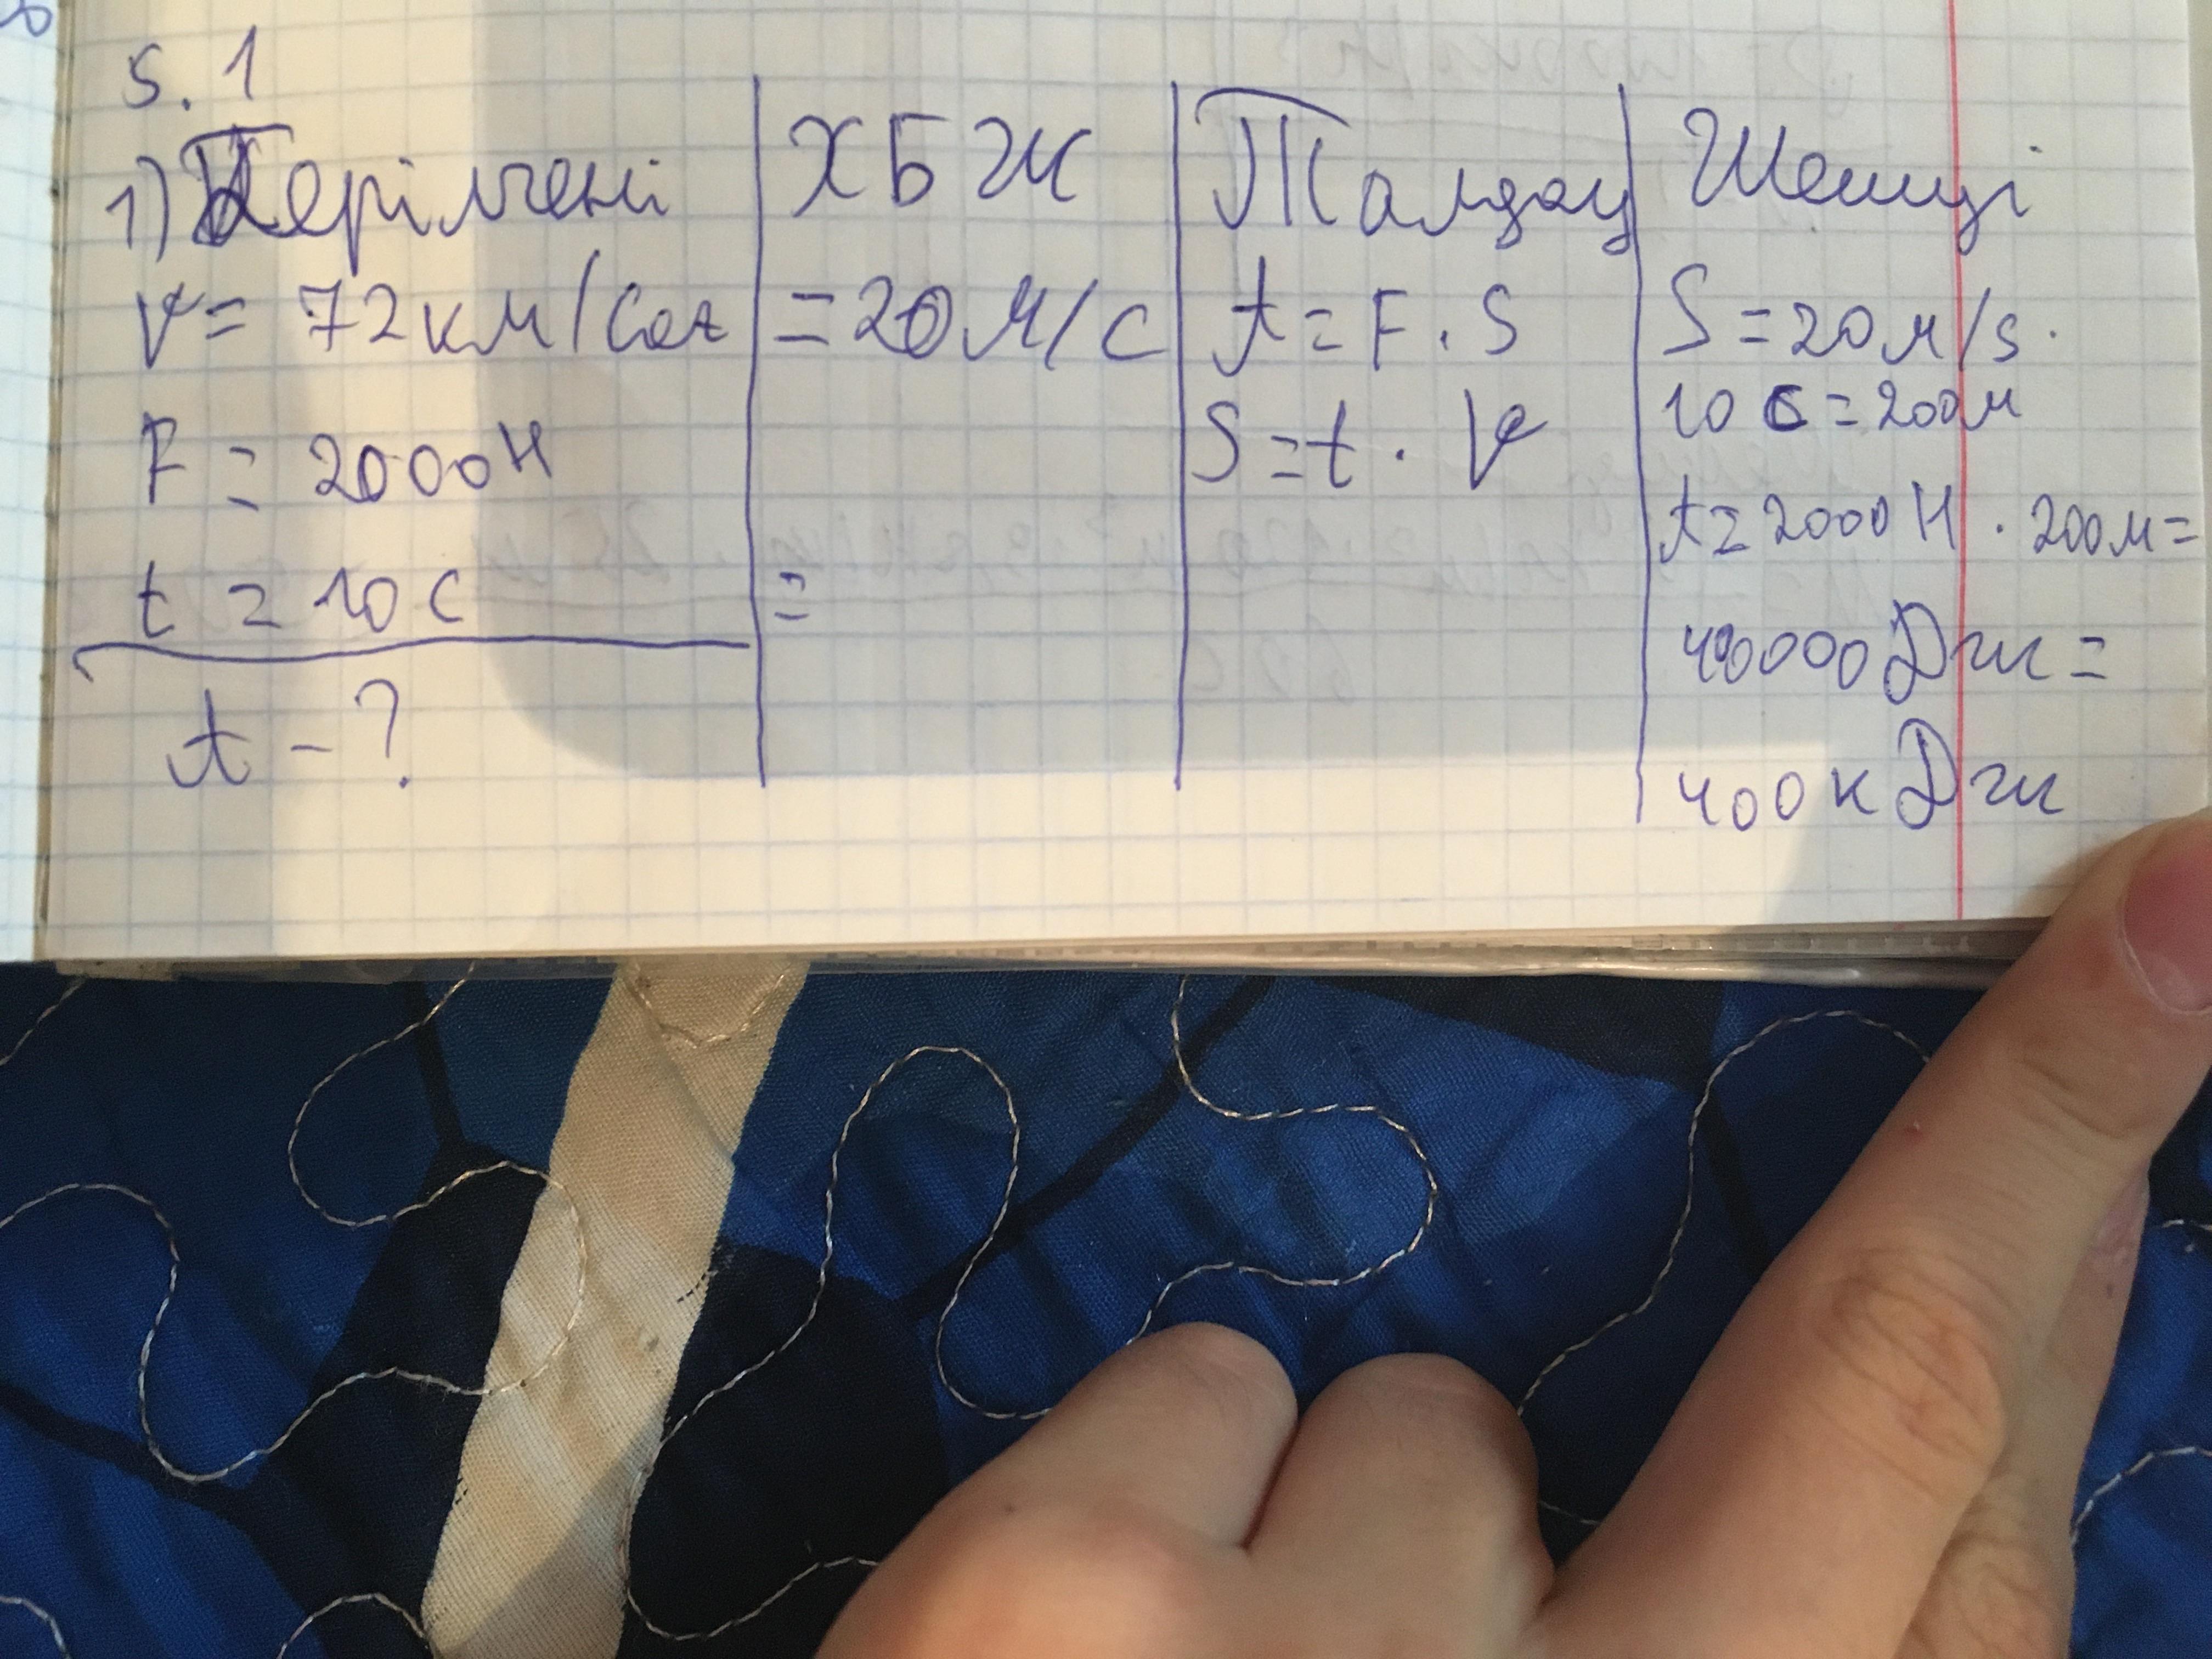 5.1
1) Берілгені
V = 72 км/сағ
F = 2000 Н
t = 10 с
A - ?
ХБЖ
= 20 м/с
=
Талдау
A = F · S
S = t · V
Шешуі
S = 20 м/s ·
10 с = 200 м
A = 2000 Н · 200 м =
400000 Дж =
400 кДж